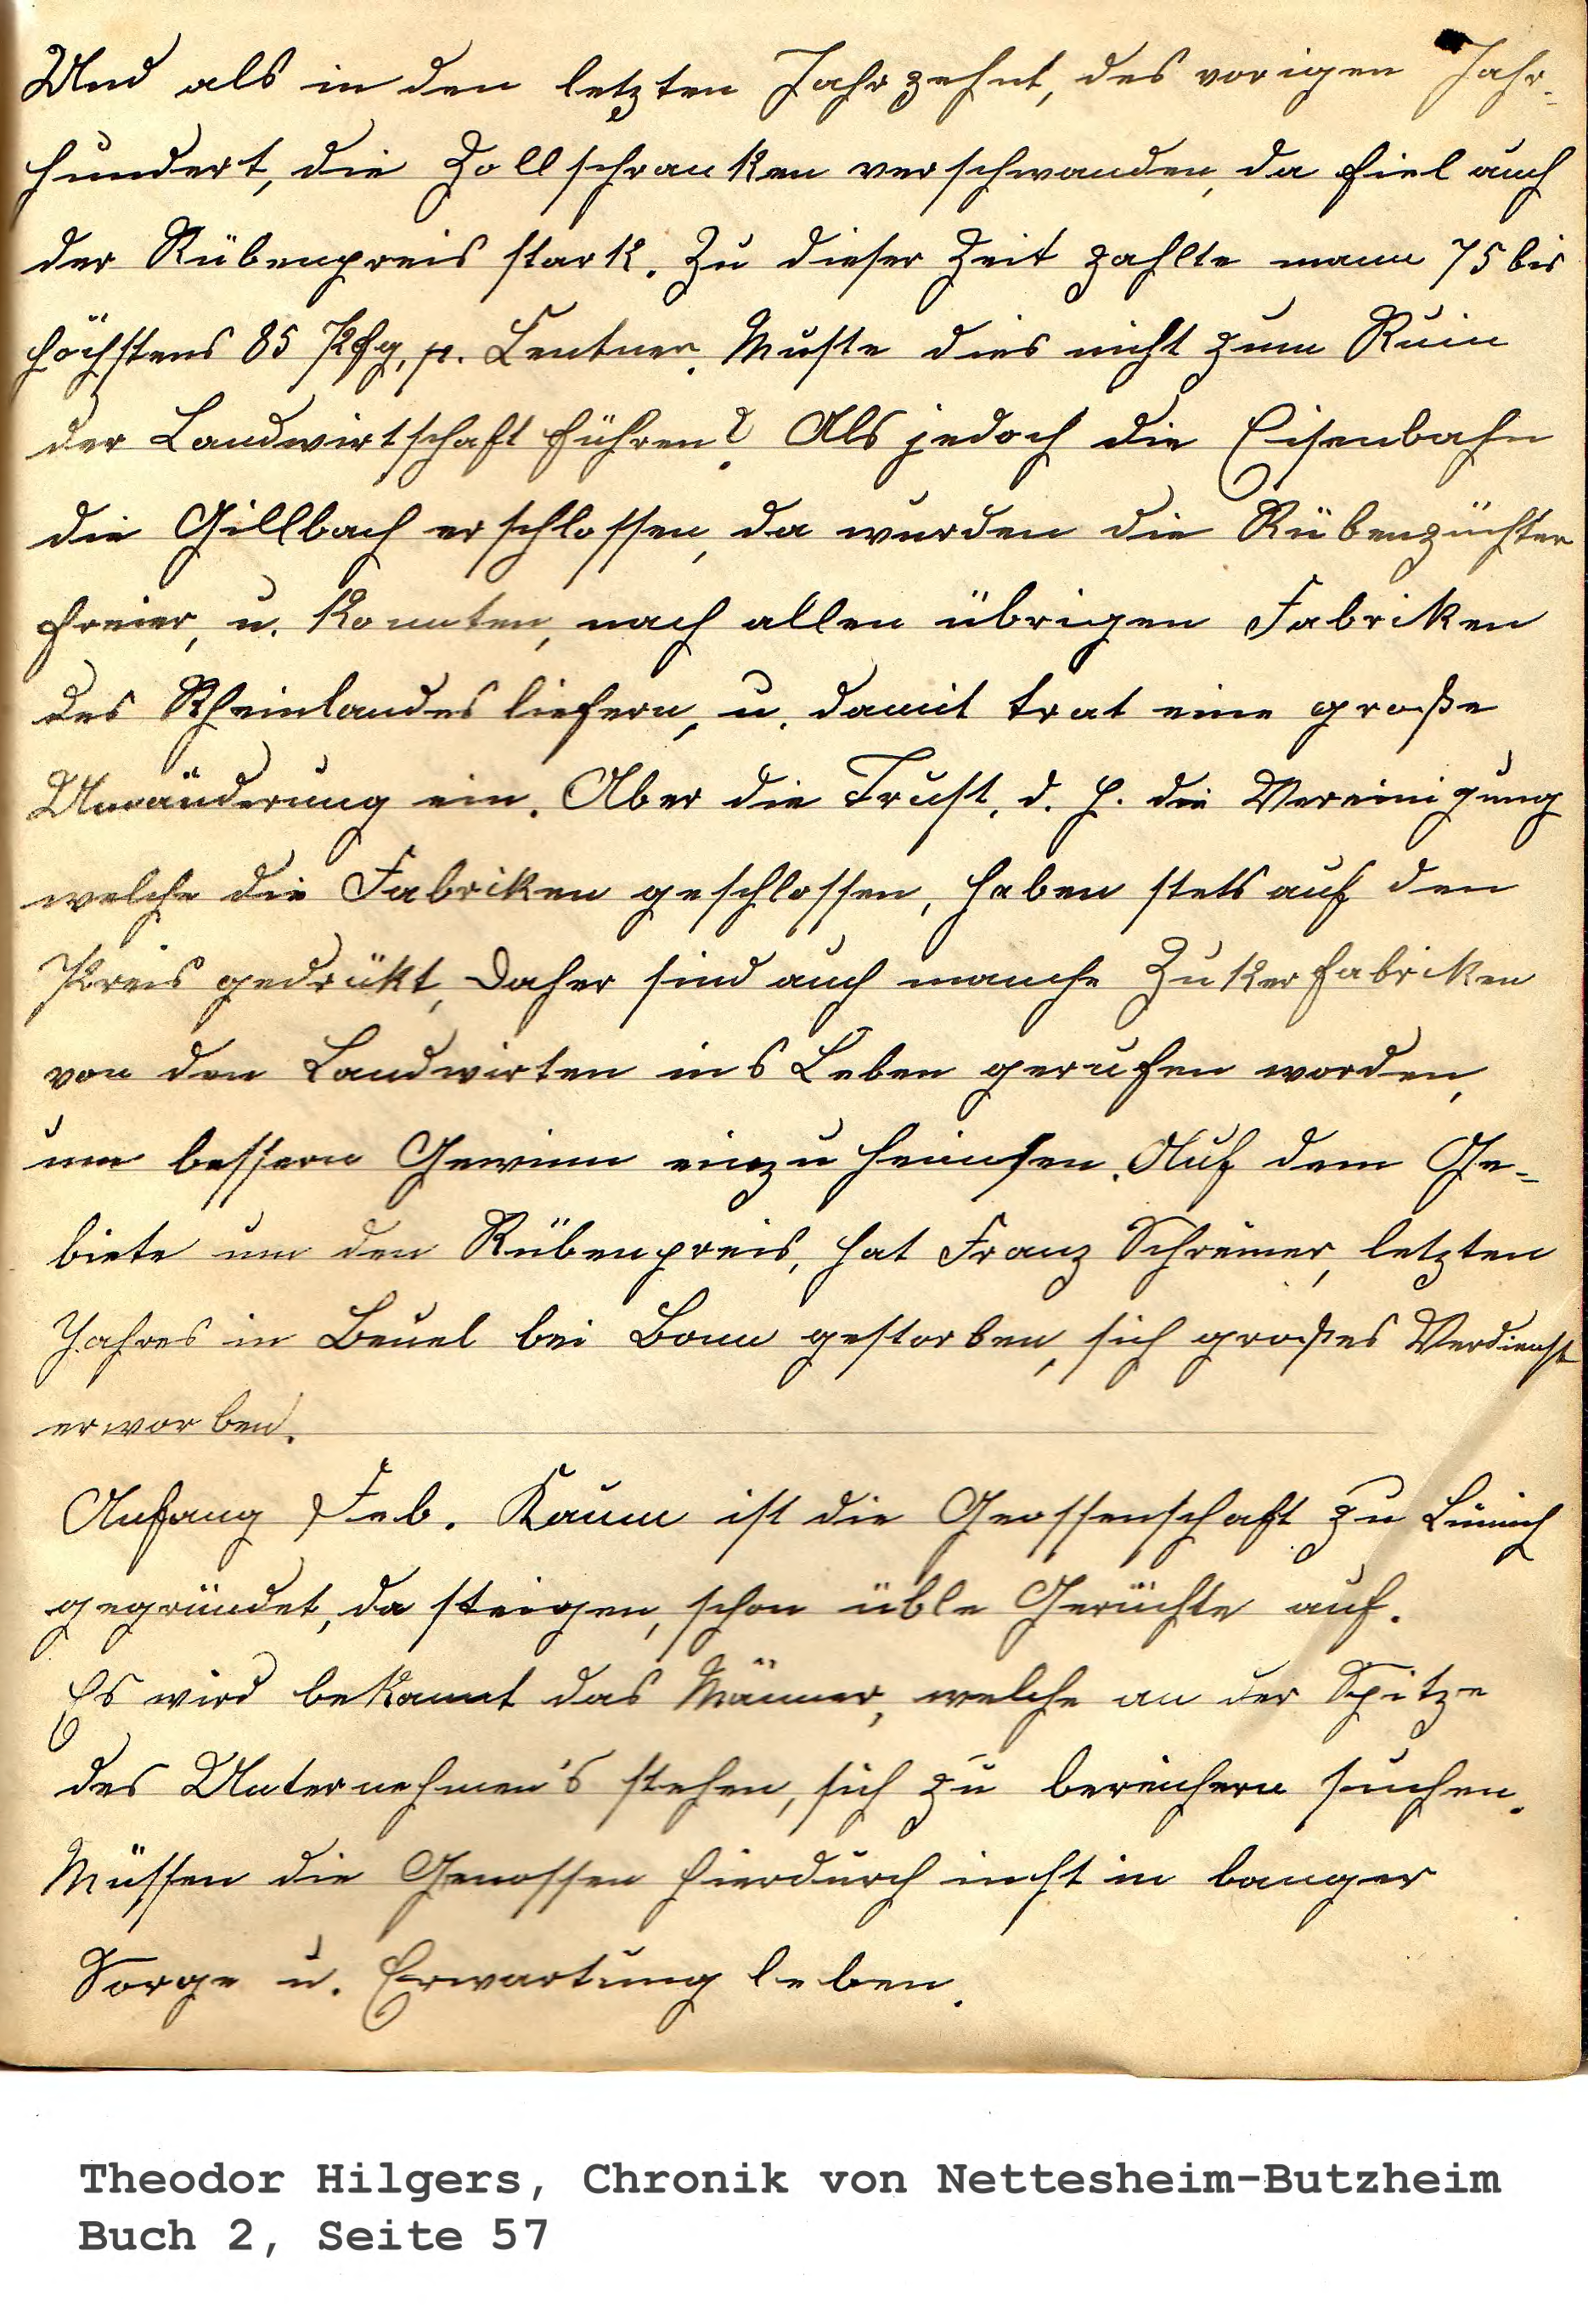 Und als in den letzten Jahrzehnt, des vorigen Jahr-
hundert, die Zollschranken verschwanden, da fiel auch
der Rübenpreis stark. Zu dieser Zeit zahlte mann 75 bis
höchstens 85 Pfg, p. Centner. Muste dies nicht zum Ruin
der Landwirtschaft führen? Als jedoch die Eisenbahn
die Gillbach erschlossen, da wurden die Rübenzüchter
freier, u. konnten, nach allen übrigen Fabriken
des Rheinlandes liefern, u. damit trat eine große
Umänderung ein. Aber die Trust, d. h. die Vereinigung
welche die Fabriken geschlossen, haben stets auf den
Preis gedrükt, Daher sind auch manche Zukerfabriken
von den Landwirten ins Leben gerufen worden,
um bessern Gewinn einzuheimsen. Auf dem Ge-
biete um den Rübenpreis, hat Franz Schreiner, letzten
Jahres in Beuel bei Bonn gestorben, sich großes Verdienst
erworben.
Anfang Feb. Kaum ist die Geossenschaft zu
gegründet, da steigen, schon üble Gerüchte auf.
Es wird bekannt das Männer, welche an der Spitze
des Unternehmen's stehen, sich zu bereichern suchen.
Müssen die Genossen hierdurch in banger
Sorge u. Erwartung leben.
Theodor Hilgers, Chronik von Nettesheim-Butzheim
Buch 2, Seite 57